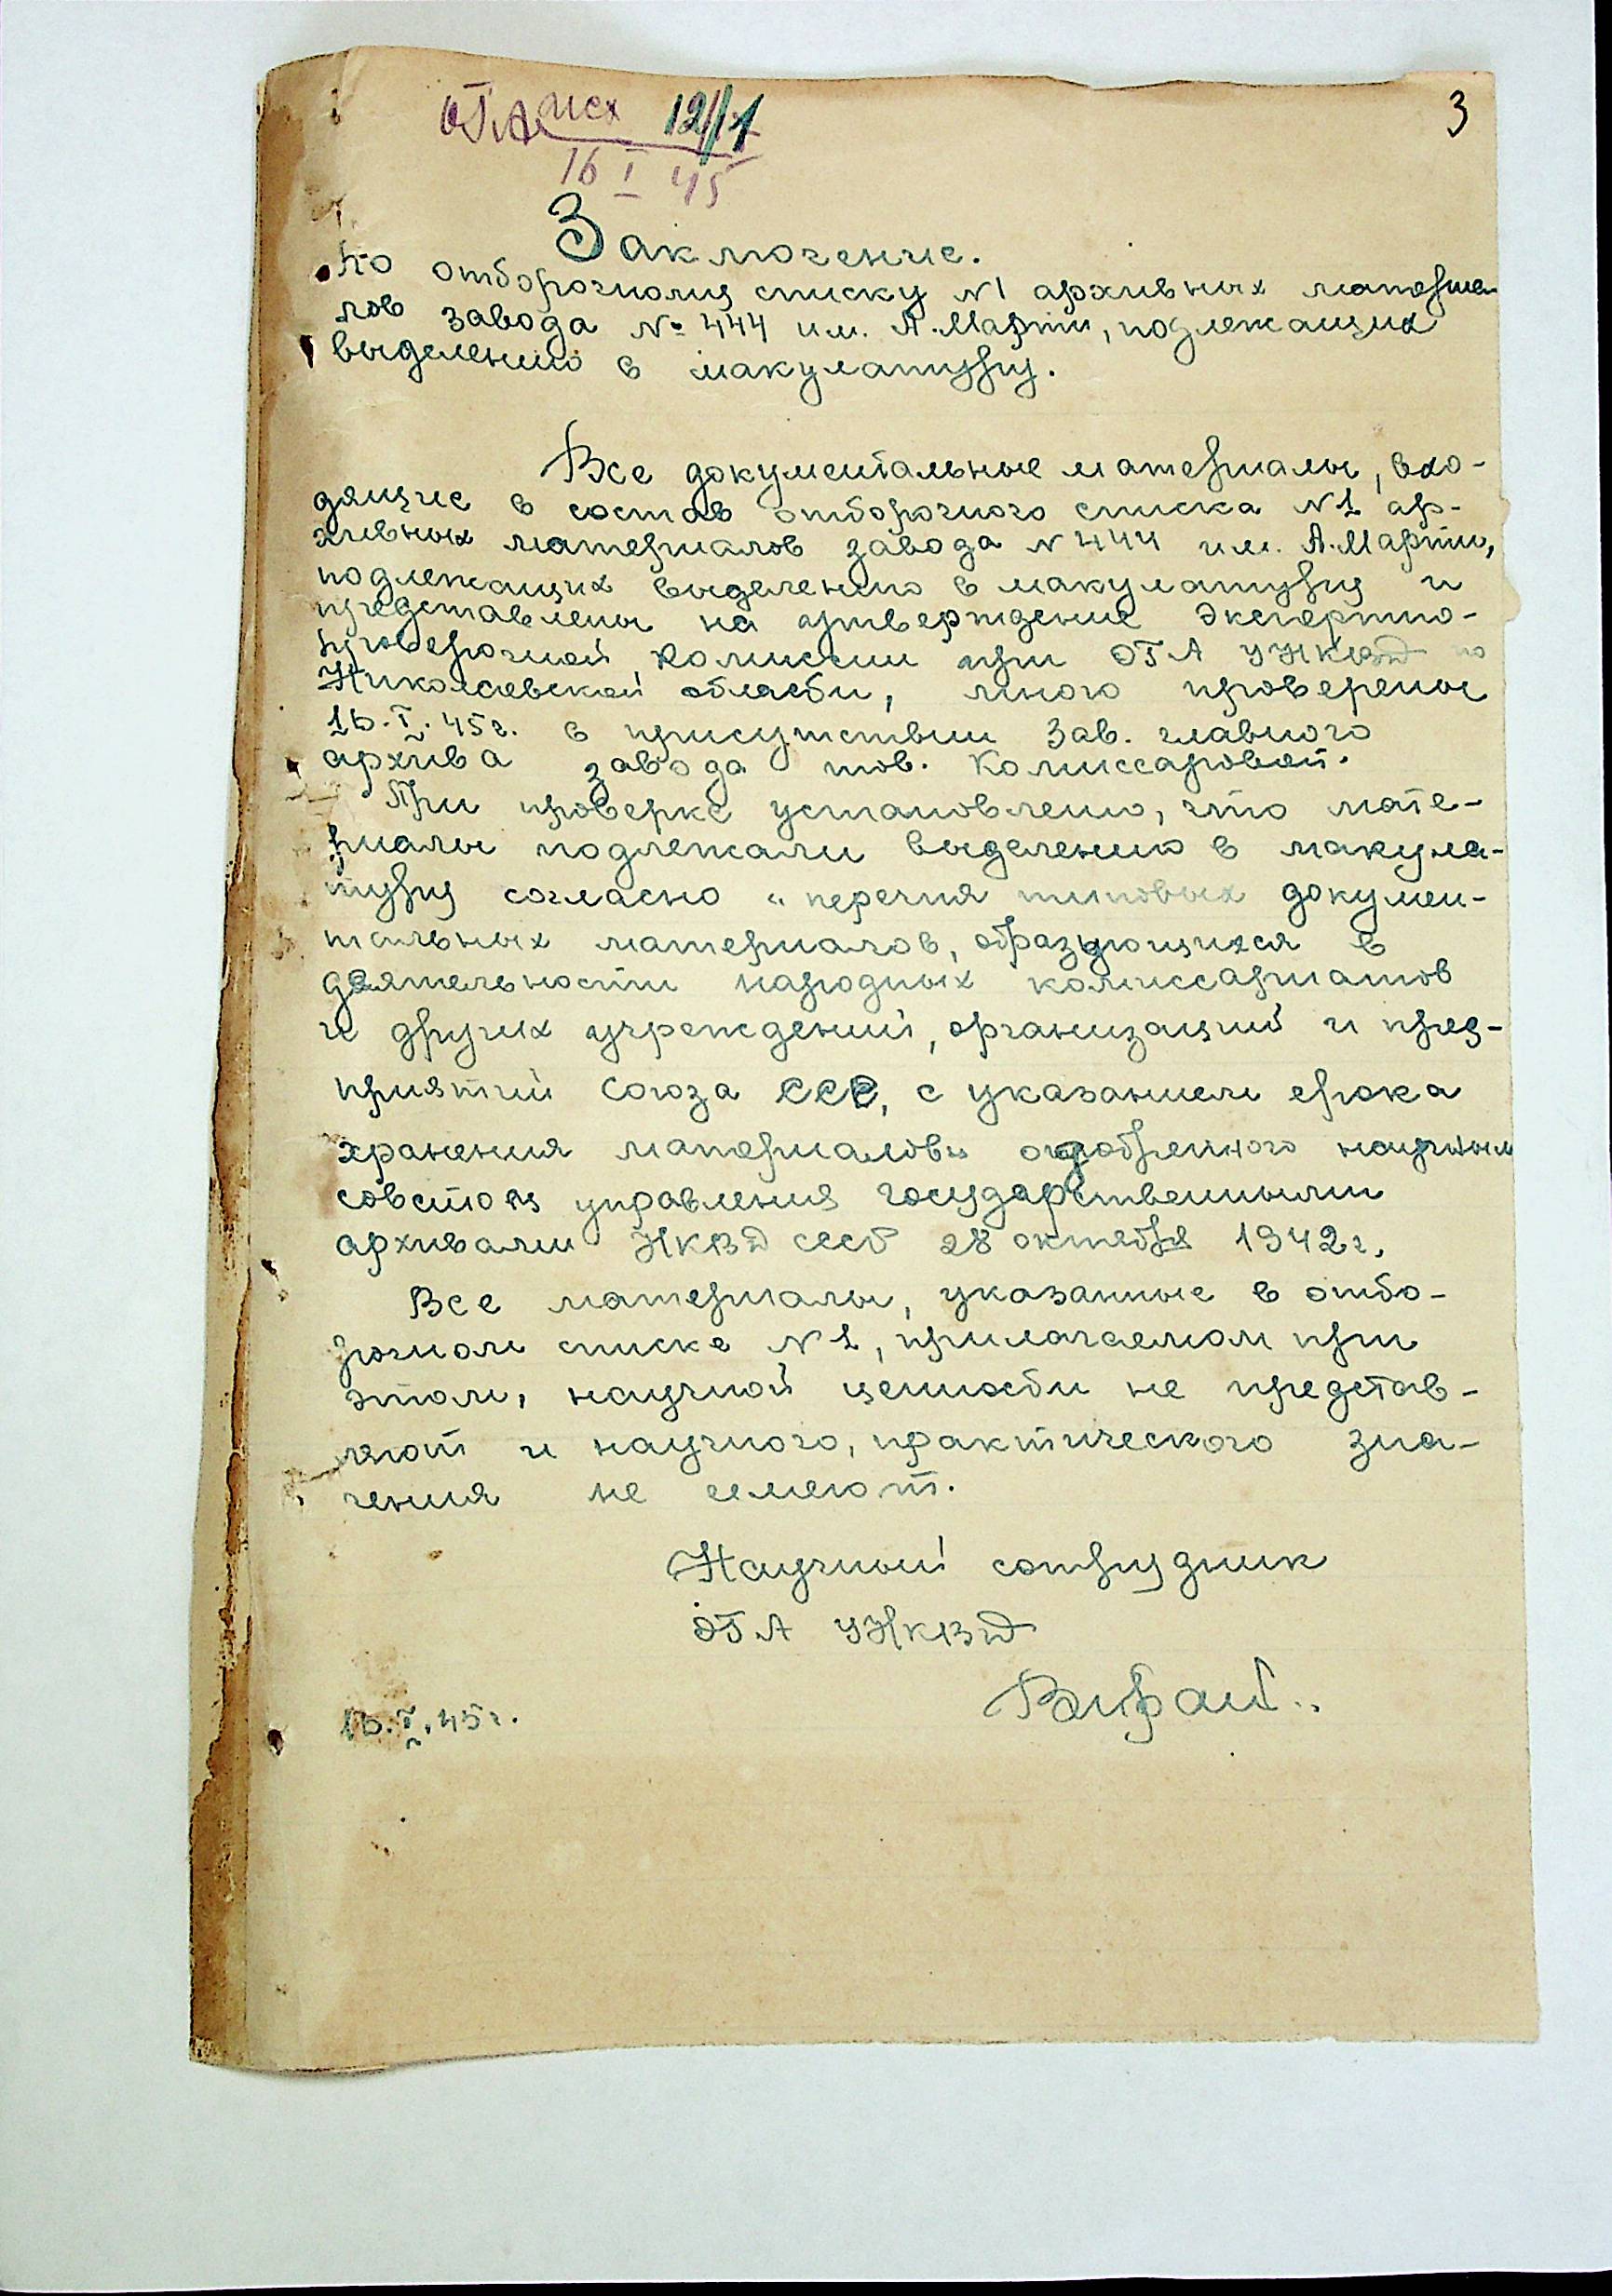 3
ОГА исх 12/1
16 I 45
Заключение.
по отборочному списку N1 архивных материа-
лов завода № 444 им. А. Марти, подлежащих
выделению в макулатуру.
Все документальные материалы, вхо-
дящие в состав отборочного списка N1 ар-
хивных материалов завода N 444 им. А. Марти,
подлежащих выделению в макулатуру и
представлены на утверждение Экспертно-
проверочной Комиссии при ОГА УНКВД по
Николаевской области, мною проверены
16. I. 45г. в присутствии Зав. главного
архива завода тов. Комиссаровой.
При проверке установлено, что мате-
риалы подлежали выделению в макула-
туру согласно „перечня типовых докумен-
тальных материалов, образующихся в
деятельности народных комиссариатов
и других учреждений, организаций и пред-
приятий Союза ССР, с указанием срока
хранения материалов" одобренного научным
советом управления государственными
архивами НКВД СССР 28 октября 1942г.
Все материалы, указанные в отбо-
рочном списке N1, прилагаемом при
этом, научной ценности не представ-
ляют и научного, практического зна-
чения не имеют.
Научный сотрудник
ОГА УНКВД
16. I. 45г.